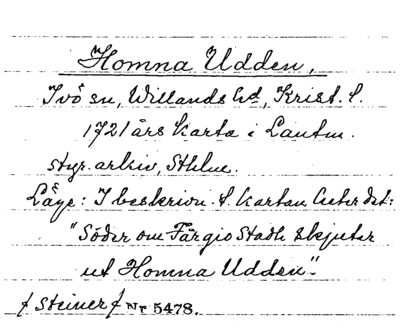 Homna Udden,
Ivö sn, Willands hd, Krist. l.
1721 års karta i Lantm.
styr. arkiv, Sthlm.
Läge: I beskrivn. t. kartan heter det:
"Söder om Färgio Stadh skjuter
ut Homna Udden".
/ Steiner / Nr 5478.